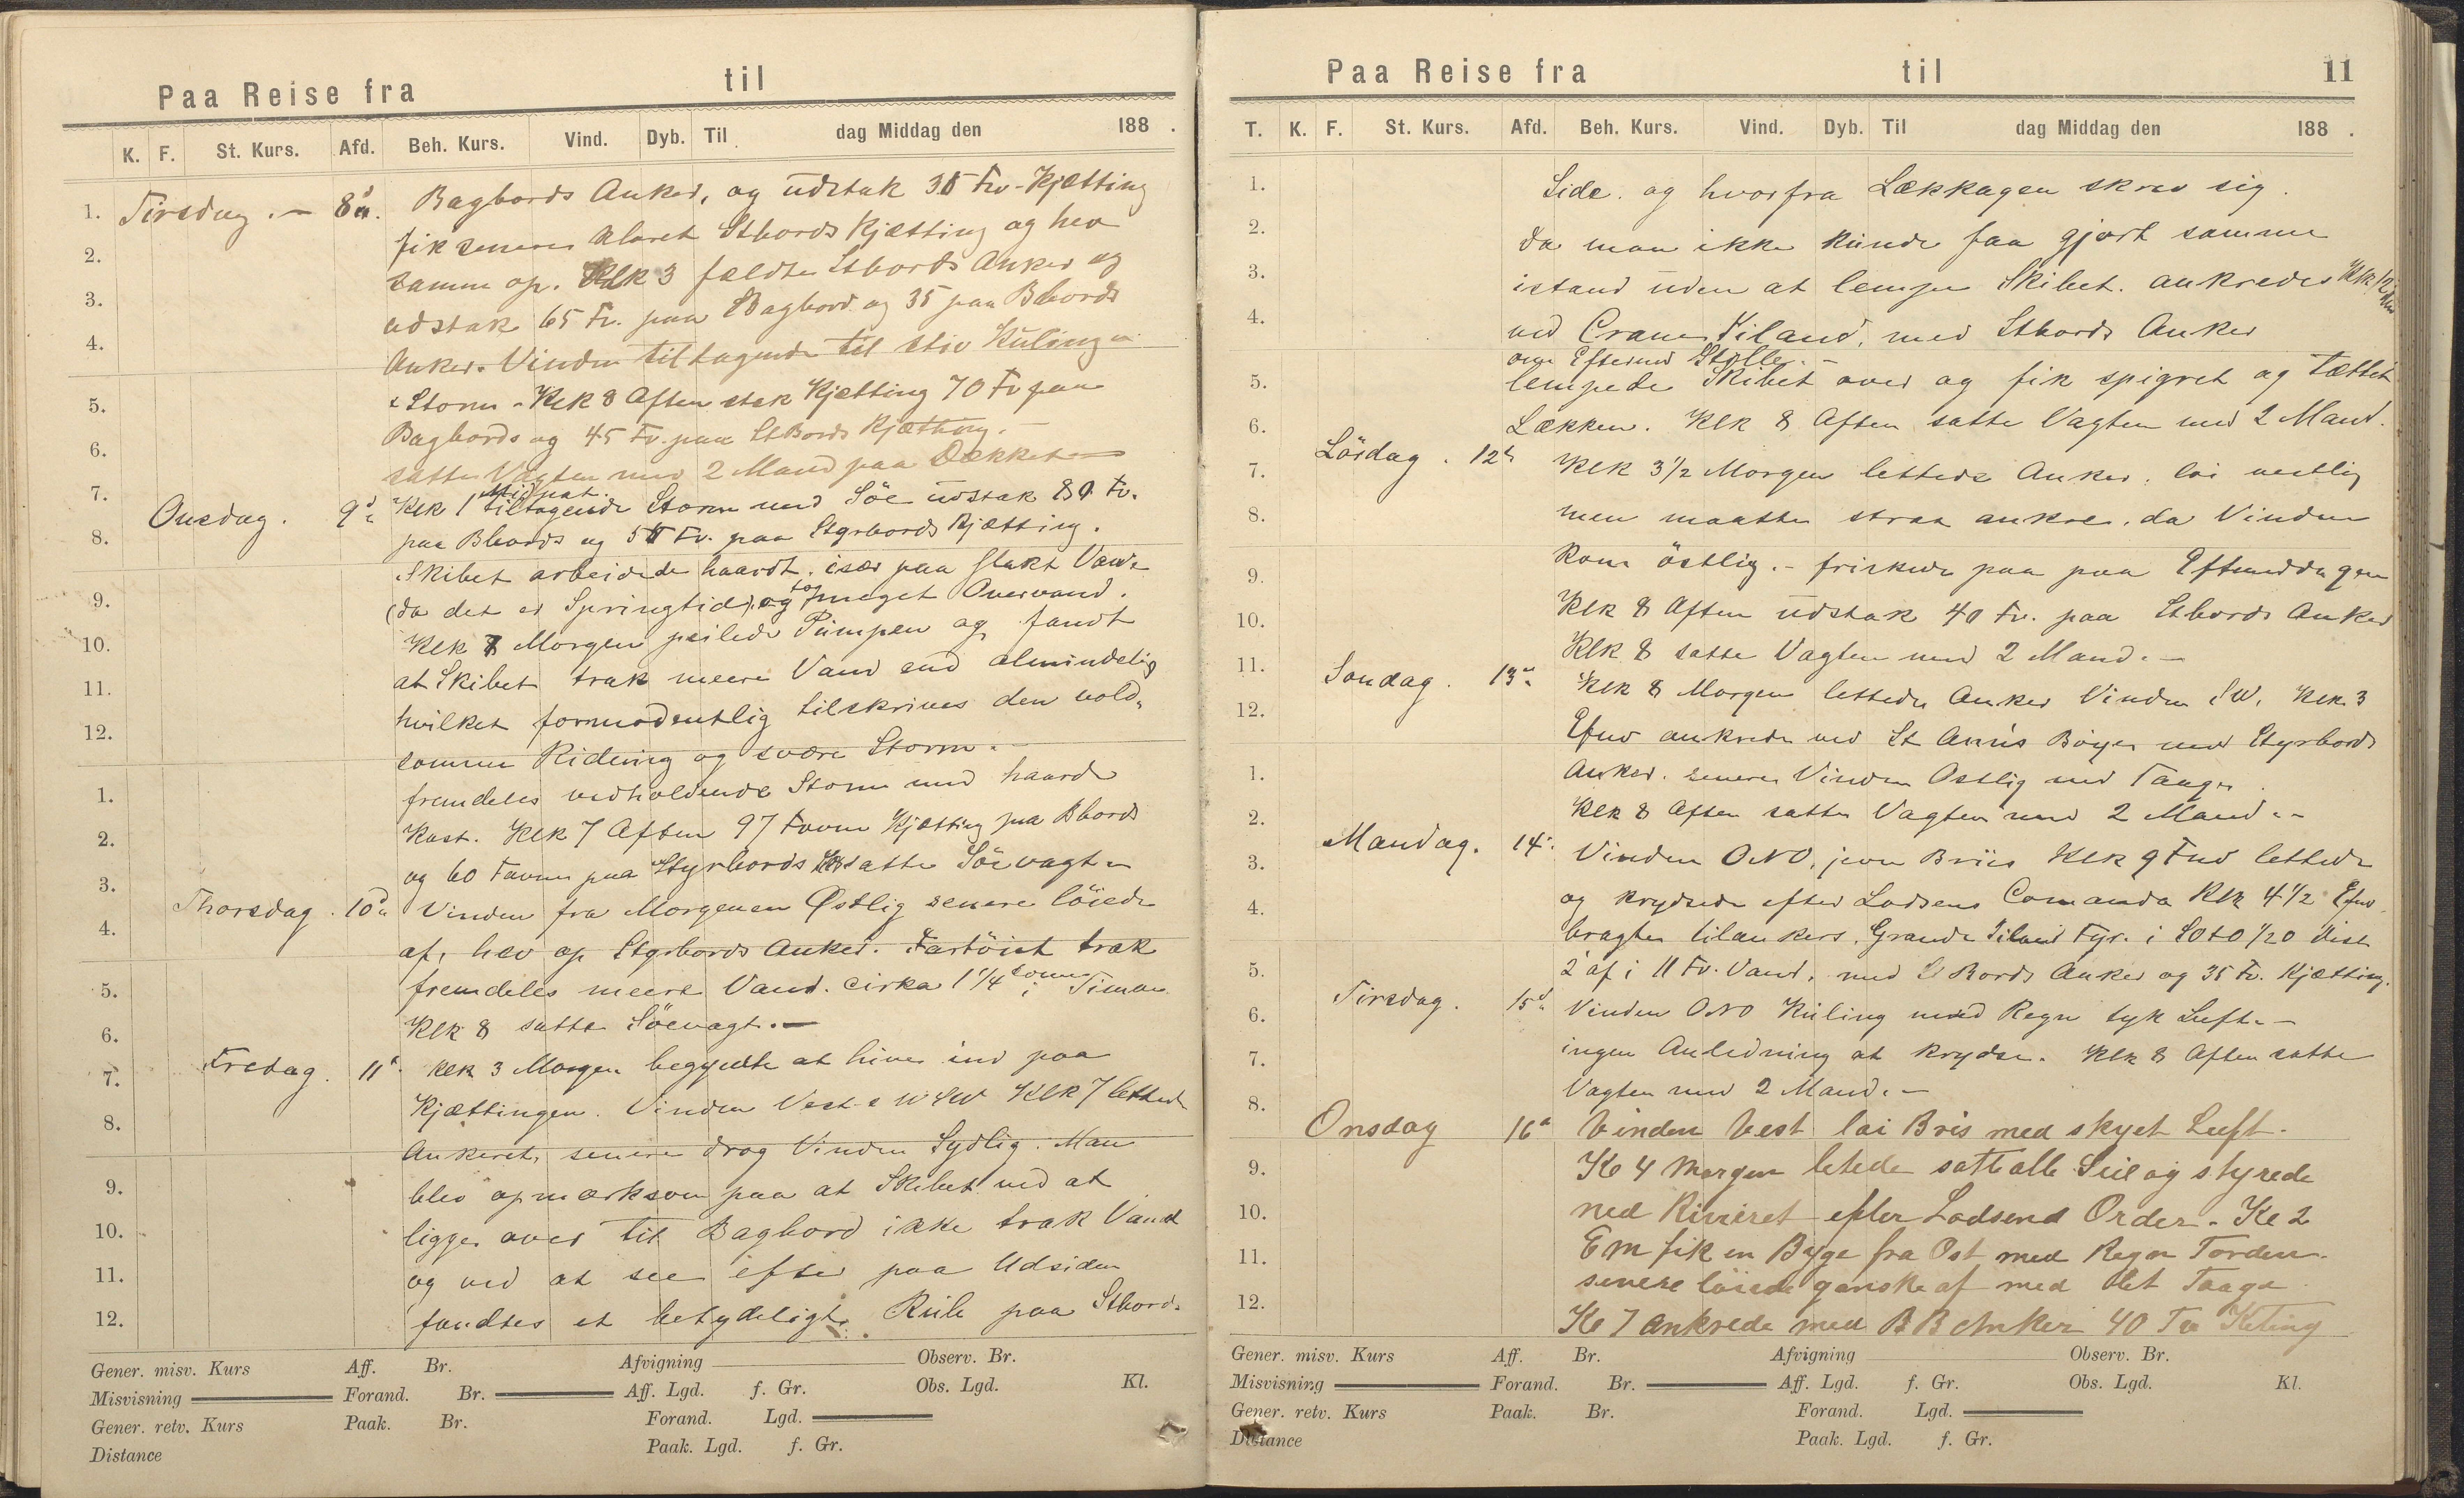 Paa Reise fra til
K. F. St. Kurs. Afd. Beh. Kurs. Vind. Dyb. Til dag Middag den 188 .
1. Tirsdag .– 8d. Bagbords Anker, og udstak 35 Fv-Kjætting
fik senere klaret Stbords Kjætting og hev
2.
samme op. Klk 3 fældte Stbords Anker og
3.
udstak 65 Fv. paa Bagbord og 35 paa Bbords
4.
Anker. Vinden tiltagende til stiv Kuling
& Storm – Klk 8 Aften stak Kjætting 70 Fv paa
5.
Bagbords og 45 Fv. paa StBords Kjætting. –
6.
satte Vagten med 2 Mand paa Dækket
7.
Midnat.
Onsdag. 9d Klk 1 tiltagende Storm med Söe udstak 80 Fv.
8.
paa Bbords og 50 Fv. paa Styrbords Kjætting.
Skibet arbeidede haardt, især paa flakt Vand
9.
(da det er Springtid), og tog meget Overvand.
10.
Klk 8 Morgen peilede Pumpen og fandt
at Skibet trak meere Vand end almindelig
11.
hvilket formodentlig tilskrives den vold-
12.
somme Ridning og svære Storm. –
fremdeles vedholdende Storm med haarde
1.
Kast. Klk 7 Aften 97 Favne Kjætting paa Bbords
2.
og 60 Favne paa Styrbords satte Söevagten
3.
Thorsdag. 10d Vinden fra Morgenen Østlig senere löiede
4.
af, hev op Styrbords Anker. Fartöiet trak
fremdeles meere Vand. cirka 1 1/4 tomme i Timen
5.
Klk 8 satte Söevagt. –
6.
Fredag. 11d Klk 3 Morgen begyndte at hive ind paa
7.
Kjættingen. Vinden Vest & WSW Klk 7 lettede
8.
Ankeret, senere drog Vinden Sydlig. Man
blev opmærksom paa at Skibet ved at
9.
ligge over til Bagbord ikke trak Vand
10.
og ved at see efter paa Udsiden
11.
fandtes et betydeligt paa Stbords
12.
Gener. misv. Kurs Aff. Br. Afvigning Observ. Br.
Misvisning Forand. Br. Aff. Lgd. f. Gr. Obs. Lgd. Kl.
Gener. retv. Kurs Paak. Br. Forand. Lgd.
Distance Paak. Lgd. f. Gr.
Paa Reise fra til 11
T. K. F. St. Kurs. Afd. Beh. Kurs. Vind. Dyb. Til dag Middag den 188 .
1. Side. og hvorfra Lækkagen skrev sig.
2. da man ikke kunde faa gjort samme
3. istand uden at lempe Skibet. ankredes Klk 12
4. ved Crane Iland, med Stbords Anker
5. lempede Skibet over og fik spigret og tættet
6. Lækken. Klk 8 Aften satte Vagten med 2 Mand.
Lördag. 12d Klk 3 1/2 Morgen lettede Anker. löi vestlig
7.
men maatte strax ankre, da Vinden
8.
kom östlig. – friskede paa paa Eftermiddagen
9.
Klk 8 Aften udstak 40 Fv. paa Stbords Anker
10.
Klk 8 satte Vagten med 2 Mand. –
11.
Söndag. 13d Klk 8 Morgen lettede Anker Vinden SW. Klk 3
12.
Efmd ankrede ved St Ann's Böyer med Styrbords
Anker. senere Vinden Ostlig med Taage
1.
Klk 8 Aften satte Vagten med 2 Mand. –
2.
Mandag. 14d Vinden ONO, jevn Briis Klk 9 Fmd lettede
3.
og krydsede efter Lodsens Comando Klk 4 1/2 Efmd
4.
bragte tilankers. Grande Iland Fyr. i SOtO 1/2O Dist
2' af i 11 Fv. Vand, med StBords Anker og 35 Fv. Kjætting.
5.
Tirsdag. 15d Vinden ONO Kuling med Regn tyk Luft. –
6.
ingen Anledning at krydse. Klk 8 Aften satte
7.
Vagten med 2 Mand. –
8.
Onsdag 16d Vinden Vest löi Bris med skyet Luft.
Kl 4 Morgen letede satte alle Seil og styrede
9.
ned Riveret efter Lodsens Order. Kl 2
10.
Em fik en Byge fra Ost med Regn Torden.
11.
senere löiede ganske af med tet Taage
12.
Kl 7 ankrede med BB Anker 40 Fv Keting
Gener. misv. Kurs Aff. Br. Afvigning Observ. Br.
Misvisning Forand. Br. Aff. Lgd. f. Gr. Obs. Lgd. Kl.
Gener. retv. Kurs Paak. Br. Forand. Lgd.
Distance Paak. Lgd. f. Gr.